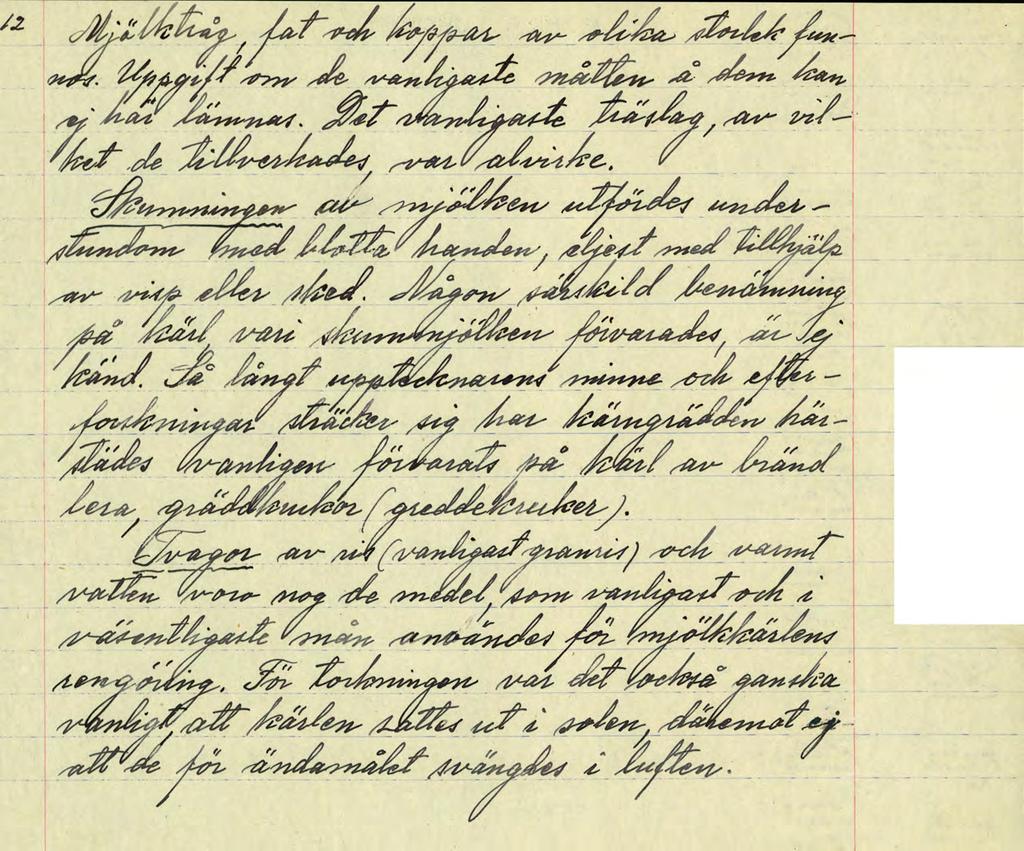 12 Mjölktråg, fat och koppar av olika storlek fun-
nos. Uppgift om de vanligaste måtten å dem kan
ej här lämnas. Det vanligaste träslag, av vil-
ket de tillverkades, var alvirke.
Skumningen av mjölken utfördes under-
stundom med blotta handen, eljest med tillhjälp
av visp eller sked. Någon särskild benämning
på kärl, vari skummjölken förvarades, är ej
känd. Så långt upptecknarens minne och efter-
forskningar sträcker sig har kärngrädden här-
städes vanligen förvarats på kärl av bränd
lera, gräddkrukor (greddekrucker).
Tvagor av ris (vanligast granris) och varmt
vatten voro nog de medel, som vanligast och i
väsentligaste mån användes för mjölkkärlens
rengöring. För torkningen var det också ganska
vanligt, att kärlen sattes ut i solen, däremot ej
att de för ändamålet svängdes i luften.